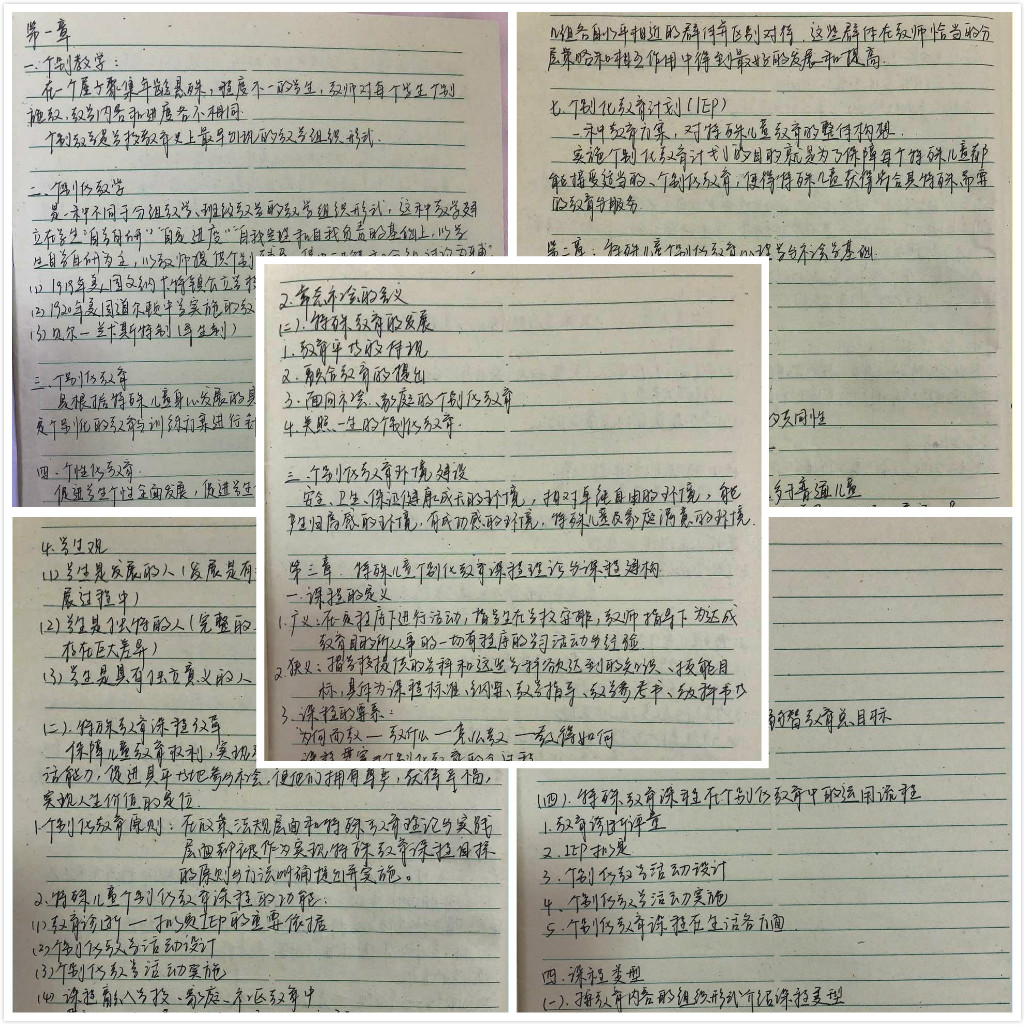 第一章
一.个别教学：
在一个屋子聚集年龄悬殊，程度不一的学生，教师对每个学生个别
施教，教学内容和进度各不相同.
个别教学是学校教育史上最早出现的教学组织形式.
二.个别化教学
是一种不同于分组教学、班级教学的教学组织形式，这种教学建
立在学生"自学自研""自定进度""自我管理和自我负责的基础上，以学
生自学自研为主，以教师提供个别
(1) 1919年美国文纳卡特镇公立学校
(2) 1920年美国道尔顿中学实施的教
(3) 贝尔—兰卡斯特制(导生制)
三.个别化教育
是根据特殊儿童身心发展的具
定个别化的教育与训练方案进行
四.个性化教育.
促进学生个性全面发展，促进学生个
几组各自水平相近的群体并区别对待，这些群体在教师恰当的分
层策略和相互作用中得到最好的发展和提高.
七.个别化教育计划(IEP)
一种教育方案，对特殊儿童教育的整体构想.
实施个别化教育计划的目的就是为了保障每个特殊儿童都
能接受适当的、个别化教育，使得特殊儿童获得符合其特殊需要
的教育与服务
第二章：特殊儿童个别化教育心理学与社会学基础
的共同性
多于普通儿童
2.融合社会的含义
(二).特殊教育的发展
1.教育平等的体现
2.融合教育的提出.
3.面向社会、家庭的个别化教育
4.关照一生的个别化教育.
三.个别化教育环境建设
安全、卫生、保证健康成长的环境，相对年龄自由的环境，能
产生归属感的环境，有成功感的环境，特殊儿童及家庭满意的环境.
第三章.特殊儿童个别化教育课程理论与课程建构
一.课程的定义
1.广义：在及程序下进行活动，指学生在学校安排，教师指导下为达成
教育目的所从事的一切有程序的学习活动与经验.
2.狭义：指学校提供的学科和这些学科欲达到的知识、技能目
标，具体为课程标准、纲要、教学指导、教学参考书、教科书乃
3.课程的要素：
为何而教—教什么—怎么教—教得如何
4.学生观
(1)学生是发展的人(发展是有
展过程中)
(2)学生是独特的人(完整的.
存在巨大差异)
(3)学生是具有独立意义的人
(二).特殊教育课程改革
保障儿童教育权利，实现
活能力，促进其平等地参与社会，使他们拥有尊重，获得幸福，
实现人生价值的定位.
1.个别化教育原则：在政策法规层面和特殊教育理论与实践
层面都被作为实现特殊教育课程目标
的原则与方法明确提出并实施。
2.特殊儿童个别化教育课程的功能：
(1)教育诊断—拟定IEP的重要依据
(2)个别化教学活动设计
(3)个别化教学活动实施
(4)课程融入学校、家庭、社区教育中
弱智教育总目标
(四).特殊教育课程在个别化教育中的运用流程
1.教育诊断评量
2.IEP拟定
3.个别化教学活动设计
4.个别化教学活动实施
5.个别化教育课程在生活各方面
四.课程类型
(一).按教育内容的组织形式介绍课程类型